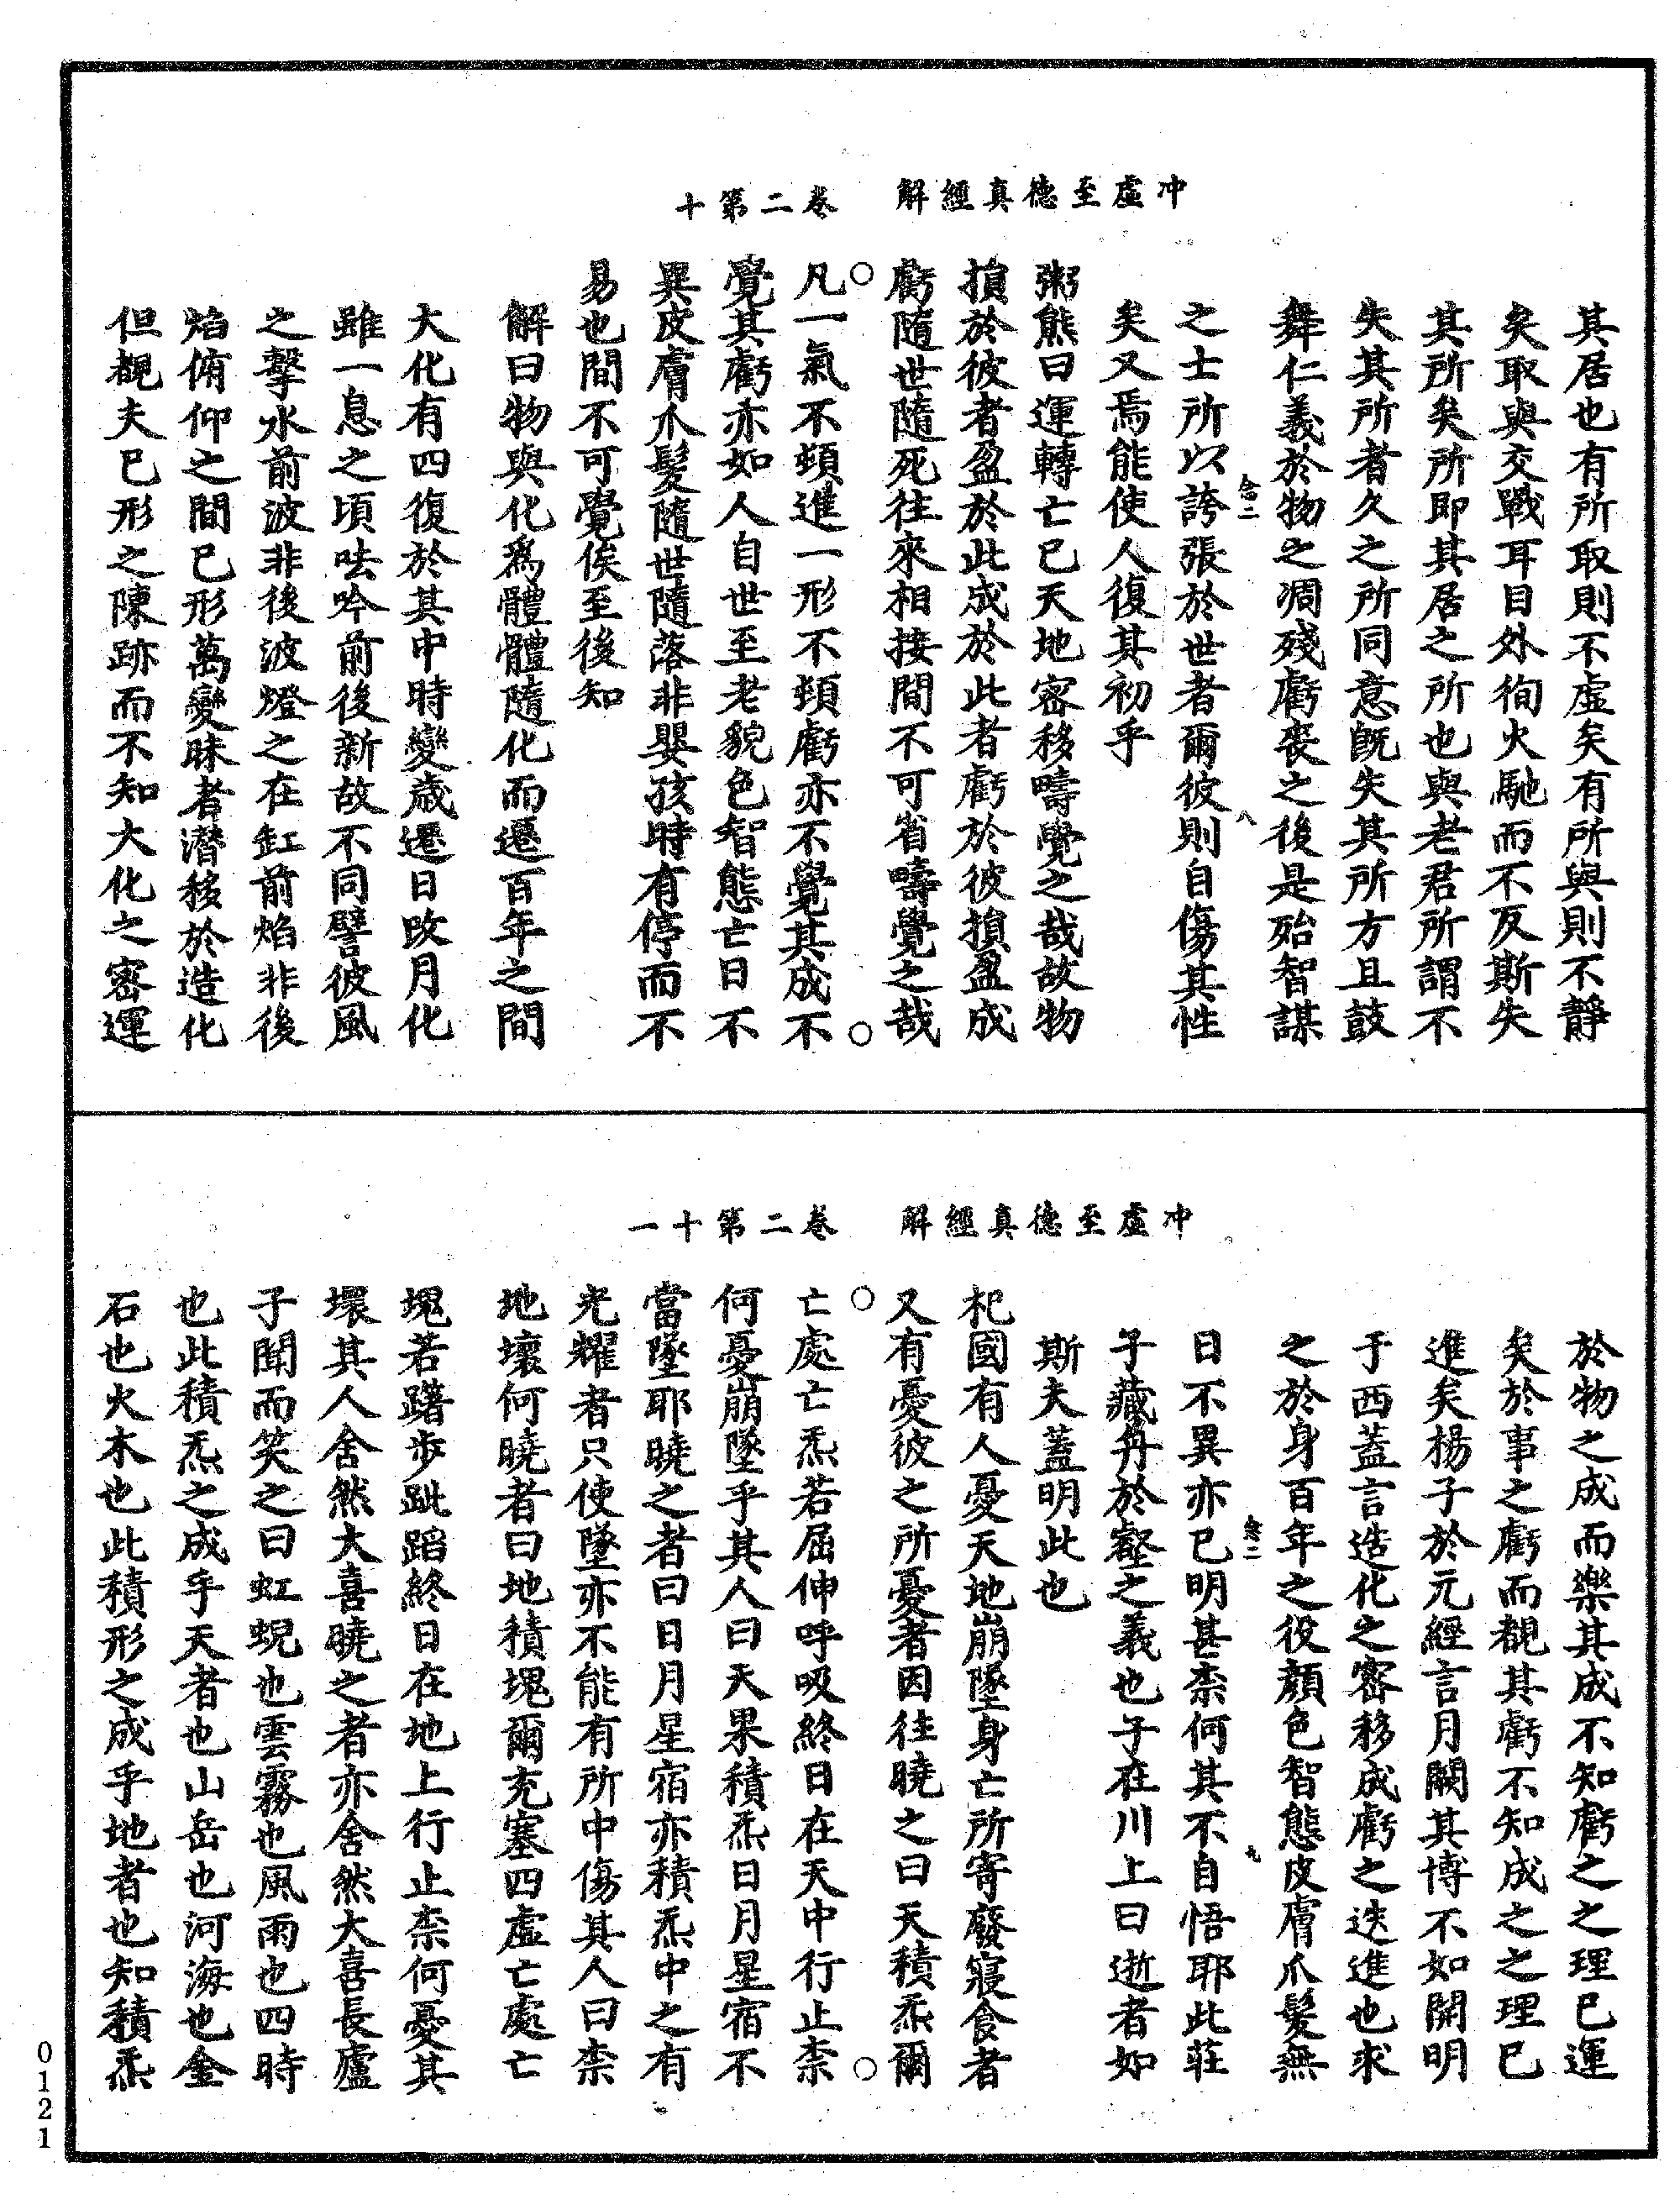 冲虛至德真經解　卷二第十
其居也有所取則不虛矣有所與則不靜
矣取與交戰耳目外徇火馳而不反斯失
其所矣所即其居之所也與老君所謂不
失其所者久之所同意旣失其所方且鼓
舞仁義於物之凋殘虧喪之後是殆智謀
念二　八
之士所以誇張於世者爾彼則自傷其性
矣又焉能使人復其初乎
粥熊曰運轉亡已天地密移疇覺之哉故物
損於彼者盈於此成於此者虧於彼損盈成
虧隨世隨死往來相接間不可省疇覺之哉
○凡一氣不頓進一形不頓虧亦不覺其成不○
覺其虧亦如人自世至老貌色智態亡日不
異皮膚爪髮隨世隨落非嬰孩時有停而不
易也間不可覺俟至後知
解曰物與化爲體體隨化而遷百年之間
大化有四復於其中時變歲遷日改月化
雖一息之頃呿吟前後新故不同譬彼風
之擊水前波非後波燈之在缸前焰非後
焰俯仰之間已形萬變昧者潛移於造化
但覩夫已形之陳跡而不知大化之密運
冲虛至德真經解　卷二第十一
於物之成而樂其成不知虧之之理已運
矣於事之虧而覩其虧不知成之之理已
進矣楊子於元經言月闕其博不如開明
于西蓋言造化之密移成虧之迭進也求
之於身百年之役顏色智態皮膚爪髮無
念二　九
日不異亦已明甚柰何其不自悟耶此莊
子藏舟於壑之義也子在川上曰逝者如
斯夫蓋明此也
杞國有人憂天地崩墜身亡所寄廢寢食者
又有憂彼之所憂者因往曉之曰天積炁爾
○亡處亡炁若屈伸呼吸終日在天中行止柰○
何憂崩墜乎其人曰天果積炁日月星宿不
當墜耶曉之者曰日月星宿亦積炁中之有
光耀者只使墜亦不能有所中傷其人曰柰
地壞何曉者曰地積塊爾充塞四虛亡處亡
塊若躇步跐蹈終日在地上行止柰何憂其
壞其人舍然大喜曉之者亦舍然大喜長廬
子聞而笑之曰虹蜺也雲霧也風雨也四時
也此積炁之成乎天者也山岳也河海也金
石也火木也此積形之成乎地者也知積炁
0121